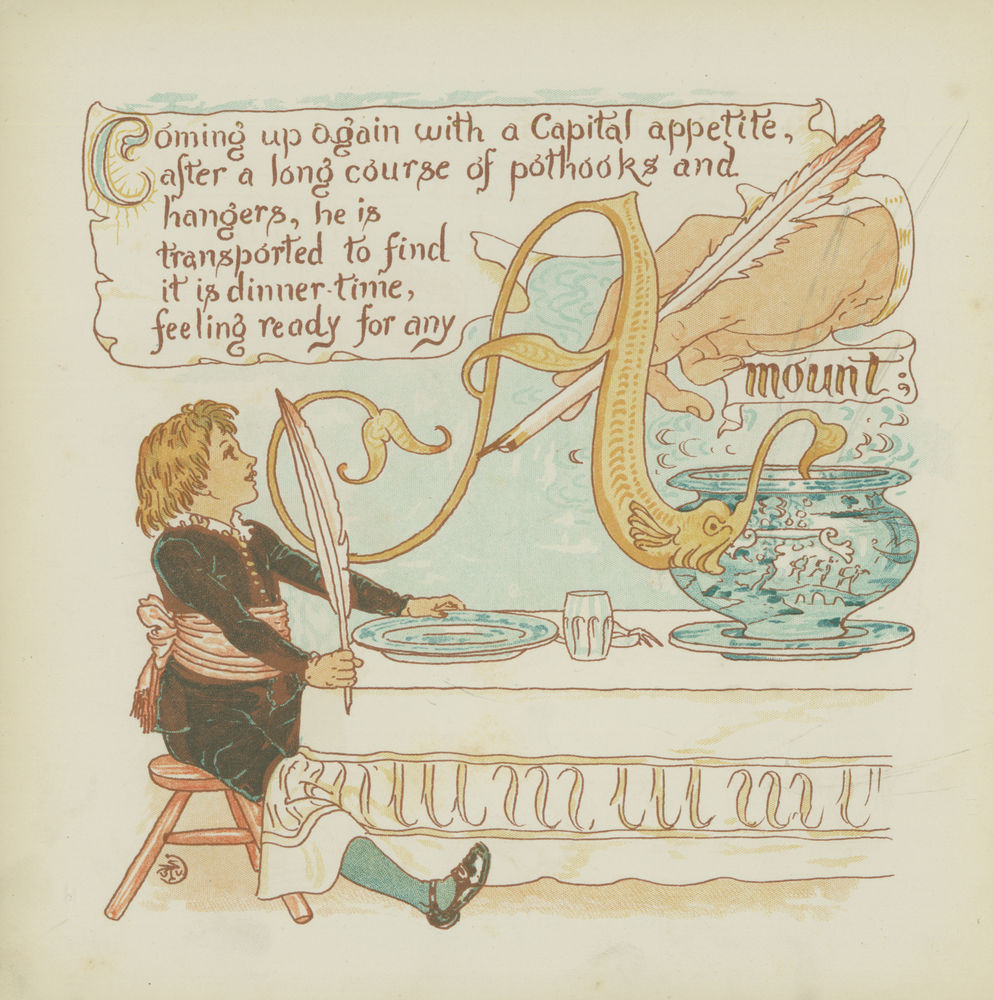 Coming up again with a Capital appetite,
after a long course of pothooks and
hangers, he is
transported to find
it is dinner-time,
feeling ready for any
A
mount: